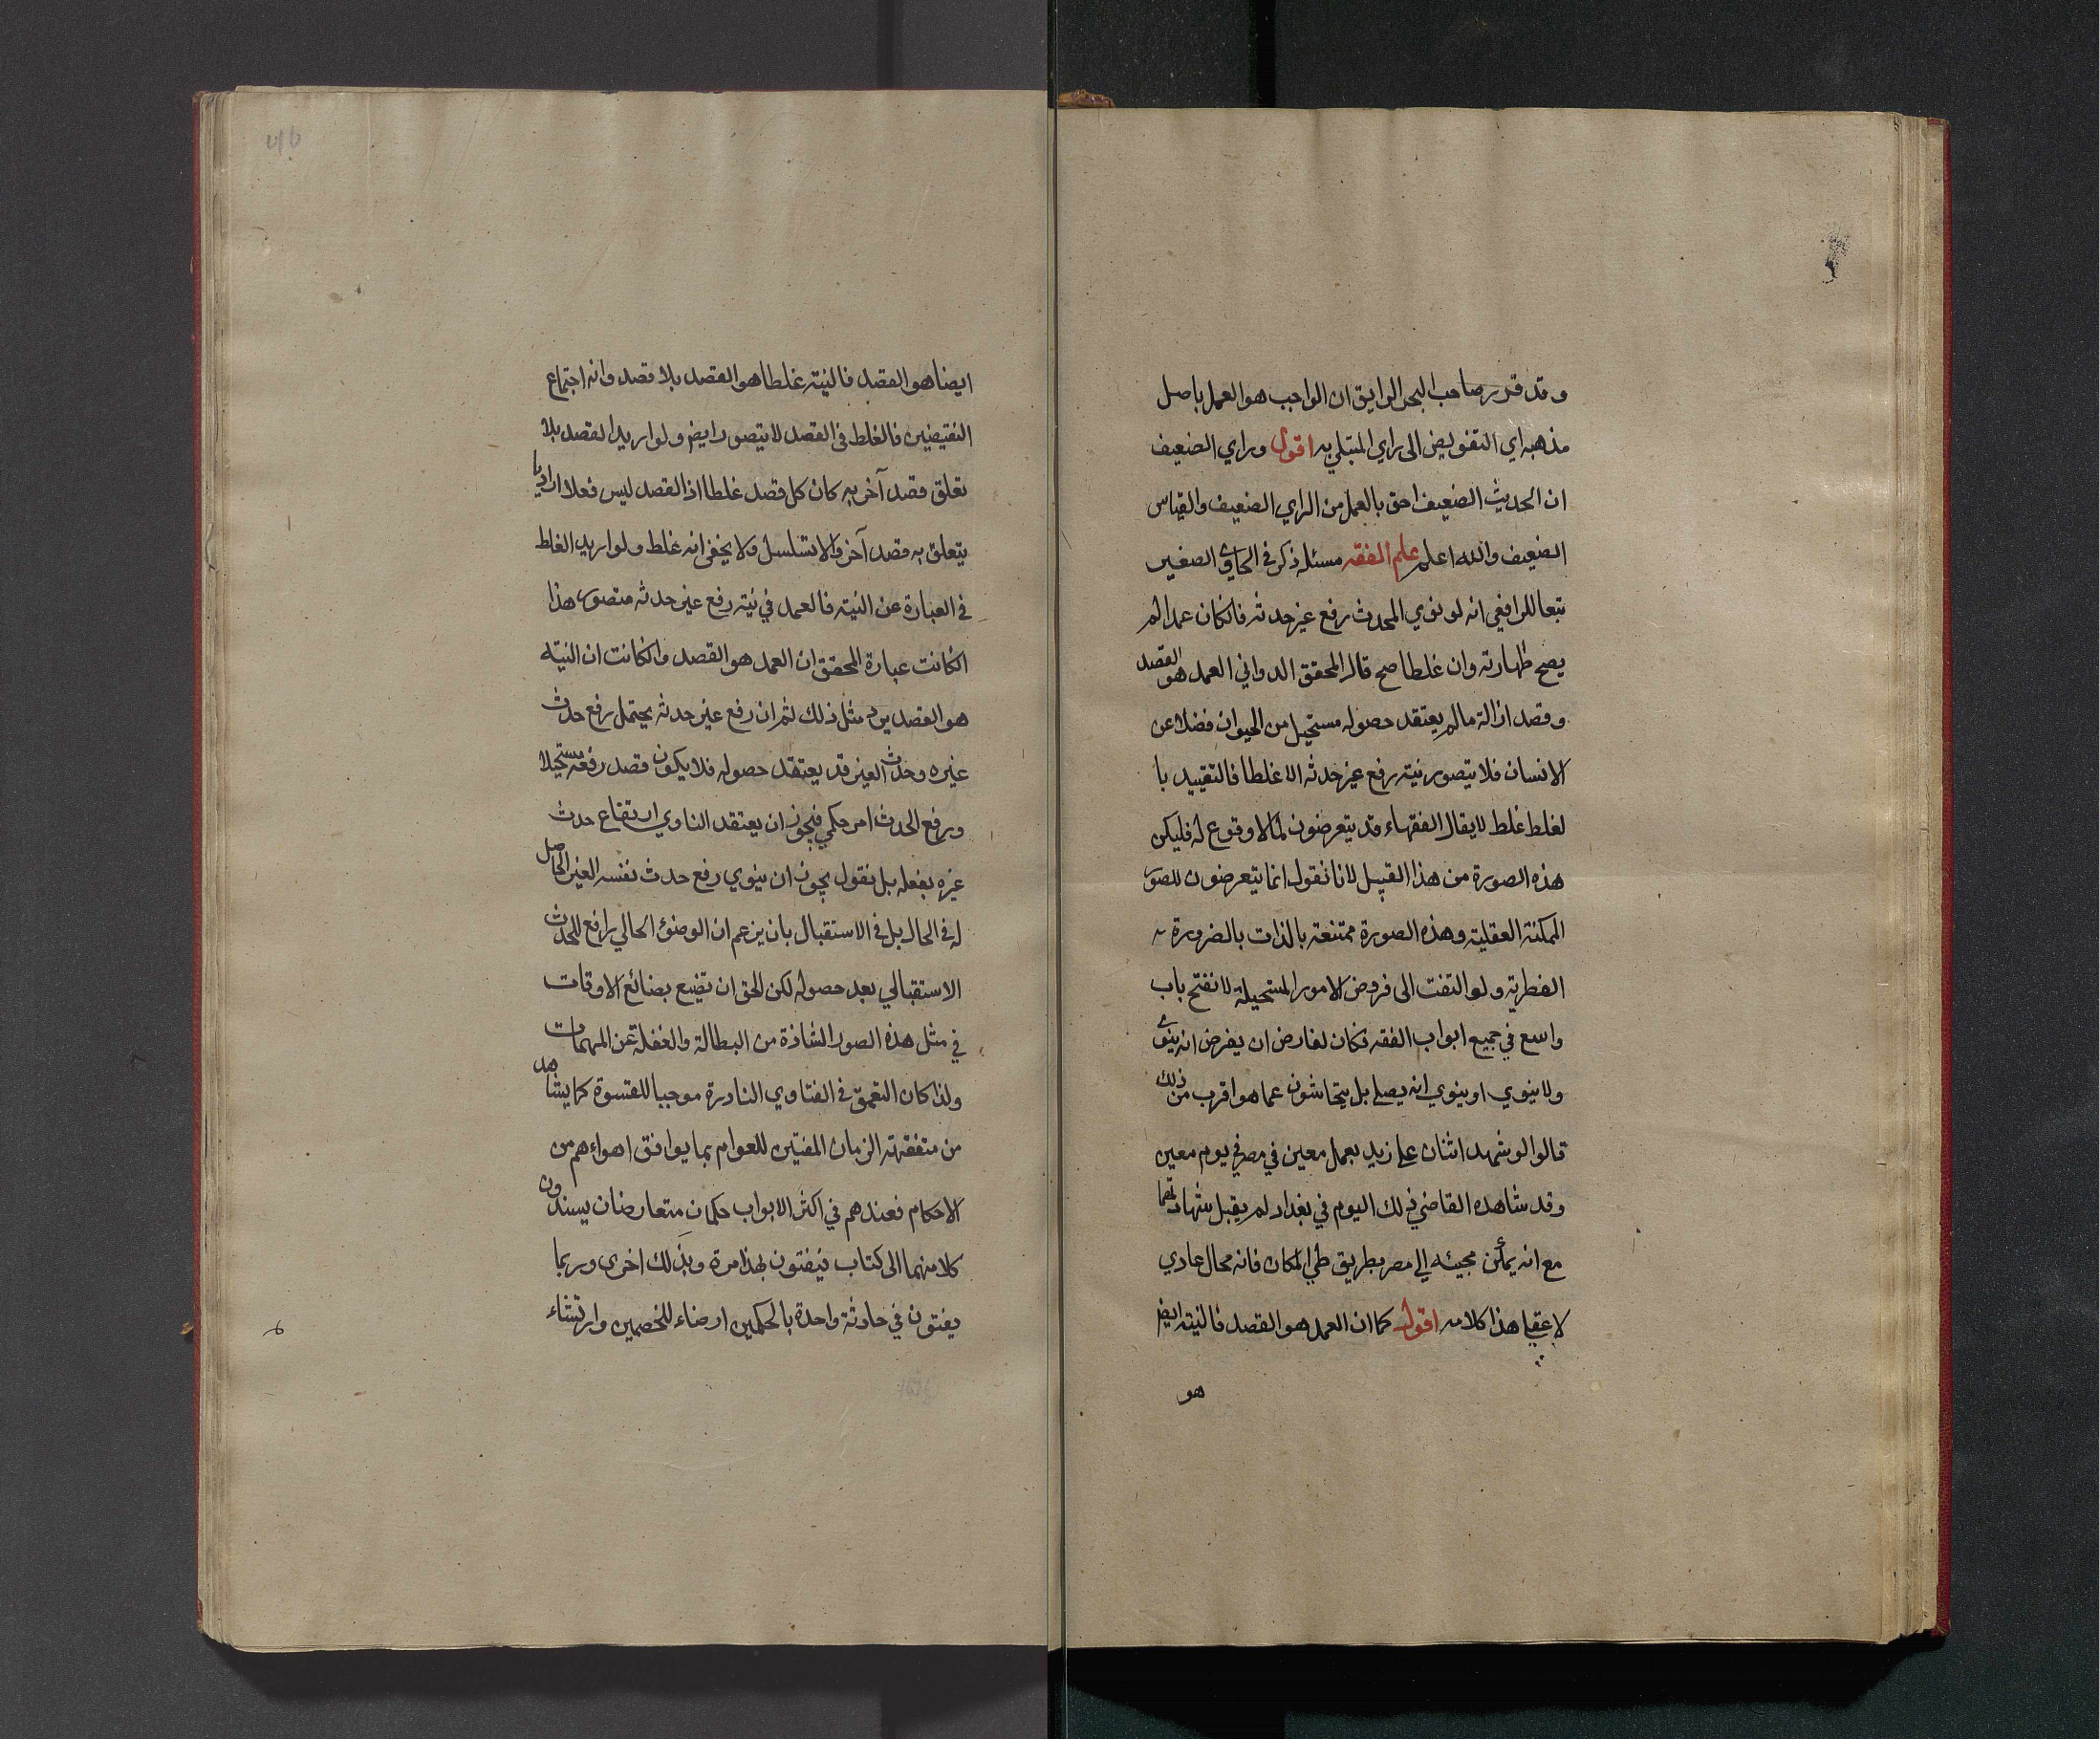 وقد قدر صاحب البحر الرايق ان الواجب هو العمل باصل
مذهبه اي التفويض الى راي المبتلي به اقول وراي الضعيف
ان الحديث الضعيف احق بالعمل من الراي الضعيف والقياس
الضعيف والله اعلم علم الفقه مسئلة ذكر في الحاوي الصغير
تبعا للرافعي انه لو نوي المحدث رفع غير حدثه فانكان عمدا لم
يصح طهارته وان غلطا صح قال المحقق الدواني العمد هو القصد
وقصد ازالة مالم يعتقد حصوله مستحيل من الحيوان فضلا عن
الانسان فلا يتصور نية رفع غير حدثه الا غلطا فالتقييد با
لغلط غلط لا يقال الفقهاء قد يتعرضون لما لا وقوع له فليكن
هذه الصورة من هذا القبيل لانا نقول انما يتعرضون للصور
الممكنة العقلية وهذه الصورة ممتنعة بالذات بالضرورة
الفطرية ولو التفت الى فروض الامور المستحيلة لانفتح باب
واسع في جميع ابواب الفقه فكان لفارض ان يفرض انه ينوي
ولا ينوي او ينوي انه يصلي بل يتحاشون عما هو اقرب من ذلك
قالوا لو شهد اثنان على زيد بعمل معين في مصر في يوم معين
وقد شاهده القاضي في ذلك اليوم في بغداد لم يقبل شهادتهما
مع انه يمكن مجيئه الي مصر بطريق طي المكان فانه محال عادي
لا عقلي هذا كلامه اقول كما ان العمد هو القصد فالنية ايض
هو
ايضا هو القصد فالنية غلطا هو القصد بلا قصد وانه اجتماع
النقيضين فالغلط في القصد لا يتصور ايض ولو اريد القصد بلا
تعلق قصد آخر به كان كل قصد غلطا اذ القصد ليس فعلا اراديا
يتعلق به قصد آخر والا تسلسل ولا يخفى انه غلط ولو اريد الغلط
في العبارة عن النية فالعمد في نية رفع غير حدثه متصور هذا
انكانت عبارة المحقق ان العمد هو القصد وانكانت ان النية
هو القصد يرد مثل ذلك ثم ان رفع غير حدثه يحتمل رفع حدث
غيره وحدث الغير قد يعتقد حصوله فلا يكون قصد رفعه مستحيلا
ورفع الحدث امر حكمي فيجوز ان يعتقد الناوي ارتفاع حدث
غيره بفعله بل نقول يجوز ان ينوي رفع حدث نفسه الغير الحاصل
له في الحال بل في الاستقبال بان يزعم ان الوضوء الحالي رافع للحدث
الاستقبالي بعد حصوله لكن الحق ان تضيع بضائع الاوقات
في مثل هذه الصور الشاذة من البطالة والغفلة عن المهمات
ولذا كان التعمق في الفتاوي النادرة موجبا للقسوة كما يشاهد
من متفقهة الزمان المفتين للعوام بما يوافق اهواءهم من
الاحكام فعندهم في اكثر الابواب حكمان متعارضان يسندون
كلا منهما الى كتاب فيفتون بهذا مرة وبذلك اخرى وربما
يفتون في حادثة واحدة بالحكمين ارضاء للخصمين وارتشاء